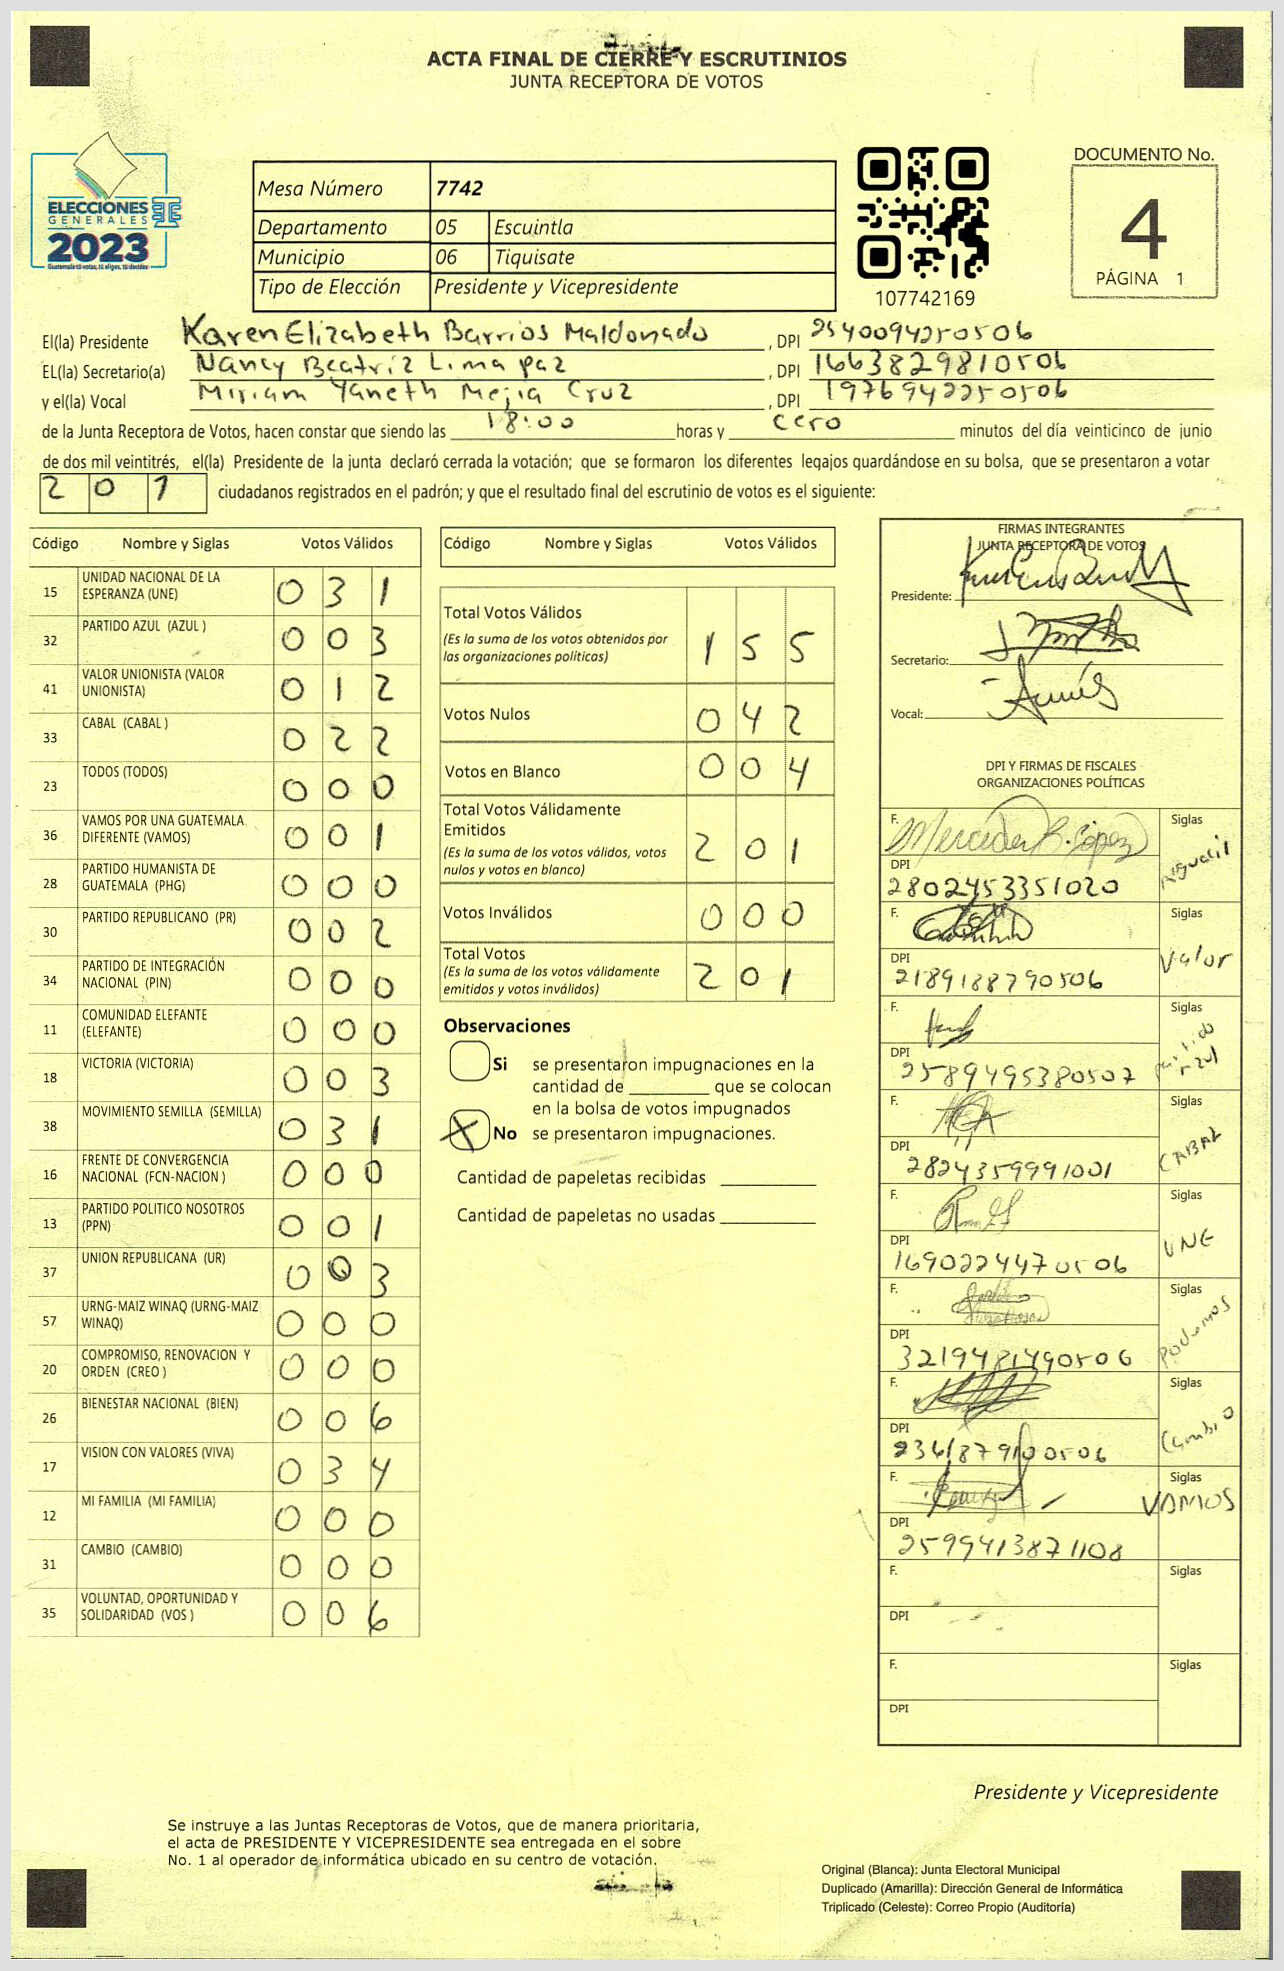 ACTA FINAL DE CIERRE Y ESCRUTINIOS
JUNTA RECEPTORA DE VOTOS
ELECCIONES
GENERALES
2023
Guatemala tú votas, tú eliges, tú decides
Mesa Número 7742
Departamento 05 Escuintla
Municipio 06 Tiquisate
Tipo de Elección Presidente y Vicepresidente
107742169
DOCUMENTO No.
4
PÁGINA 1
El(la) Presidente Karen Elizabeth Barrios Maldonado, DPI 2540094250506
EL(la) Secretario(a) Nancy Beatriz Lima paz, DPI 1663829810506
y el(la) Vocal Miriam Yaneth Mejia Cruz, DPI 1976942250506
de la Junta Receptora de Votos, hacen constar que siendo las 18:00 horas y cero minutos del día veinticinco de junio
de dos mil veintitrés, el(la) Presidente de la junta declaró cerrada la votación; que se formaron los diferentes legajos guardándose en su bolsa, que se presentaron a votar
201 ciudadanos registrados en el padrón; y que el resultado final del escrutinio de votos es el siguiente:
Código Nombre y Siglas Votos Válidos
15 UNIDAD NACIONAL DE LA ESPERANZA (UNE) 031
32 PARTIDO AZUL (AZUL ) 003
41 VALOR UNIONISTA (VALOR UNIONISTA) 012
33 CABAL (CABAL ) 022
23 TODOS (TODOS) 000
36 VAMOS POR UNA GUATEMALA DIFERENTE (VAMOS) 001
28 PARTIDO HUMANISTA DE GUATEMALA (PHG) 000
30 PARTIDO REPUBLICANO (PR) 002
34 PARTIDO DE INTEGRACIÓN NACIONAL (PIN) 000
11 COMUNIDAD ELEFANTE (ELEFANTE) 000
18 VICTORIA (VICTORIA) 003
38 MOVIMIENTO SEMILLA (SEMILLA) 031
16 FRENTE DE CONVERGENCIA NACIONAL (FCN-NACION ) 000
13 PARTIDO POLITICO NOSOTROS (PPN) 001
37 UNION REPUBLICANA (UR) 003
57 URNG-MAIZ WINAQ (URNG-MAIZ WINAQ) 000
20 COMPROMISO, RENOVACION Y ORDEN (CREO ) 000
26 BIENESTAR NACIONAL (BIEN) 006
17 VISION CON VALORES (VIVA) 034
12 MI FAMILIA (MI FAMILIA) 000
31 CAMBIO (CAMBIO) 000
35 VOLUNTAD, OPORTUNIDAD Y SOLIDARIDAD (VOS ) 006
Código Nombre y Siglas Votos Válidos
Total Votos Válidos 155
(Es la suma de los votos obtenidos por
las organizaciones políticas)
Votos Nulos 042
Votos en Blanco 004
Total Votos Válidamente
Emitidos 201
(Es la suma de los votos válidos, votos
nulos y votos en blanco)
Votos Inválidos 000
Total Votos 201
(Es la suma de los votos válidamente
emitidos y votos inválidos)
Observaciones
Si se presentaron impugnaciones en la
cantidad de ________ que se colocan
en la bolsa de votos impugnados
X No se presentaron impugnaciones.
Cantidad de papeletas recibidas
Cantidad de papeletas no usadas
FIRMAS INTEGRANTES
JUNTA RECEPTORA DE VOTOS
Presidente:
Secretario:
Vocal:
DPI Y FIRMAS DE FISCALES
ORGANIZACIONES POLÍTICAS
F. Mercedes R. López Siglas
DPI
2802453351020
F. Siglas
DPI Valor
2189188790506
F. Siglas
DPI partido azul
2589495380507
F. Siglas
DPI CABAL
2824359991001
F. Siglas
DPI UNE
1690224470506
F. Siglas
DPI podemos
3219481490506
F. Siglas
DPI Cambio
2361879100506
F. Siglas
DPI VAMOS
2599413871108
F. Siglas
DPI
F. Siglas
DPI
Presidente y Vicepresidente
Se instruye a las Juntas Receptoras de Votos, que de manera prioritaria,
el acta de PRESIDENTE Y VICEPRESIDENTE sea entregada en el sobre
No. 1 al operador de informática ubicado en su centro de votación.
Original (Blanca): Junta Electoral Municipal
Duplicado (Amarilla): Dirección General de Informática
Triplicado (Celeste): Correo Propio (Auditoría)